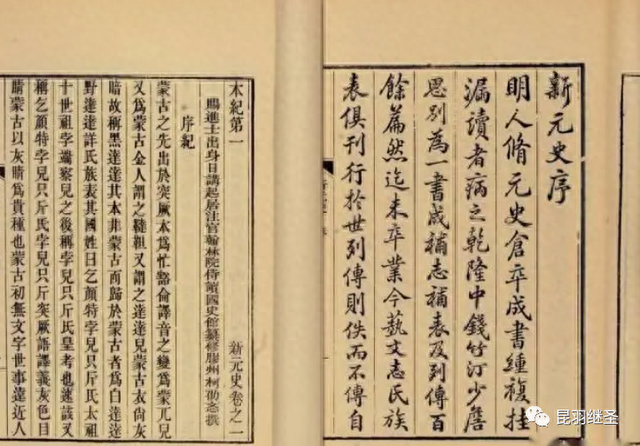 新元史序
明人脩元史倉卒成書纏複挂
漏讀者病之乾隆中錢竹汀少詹
思別為一書成補志補表及列傳百
餘篇然迄未卒業今藝文志氏族
表俱刊行於世列傳則佚而不傳自
本紀第一 新元史卷之一
賜進士出身日講起居注官翰林院侍讀國史館纂修膠州柯劭忞撰
序紀
蒙古之先出於突厥本爲忙豁侖譯音之變爲蒙兀兒
又爲蒙古金人謂之韃靼又謂之達達兒蒙古衣尚灰
暗故稱黑達達其本非蒙古而歸於蒙古者爲白達達
野達達詳氏族表其國姓曰乞顏特孛兒只斤氏太祖
十世祖孛端察兒之後稱孛兒只斤氏皇考也速該又
稱乞顏特孛兒只斤氏孛兒只斤突厥語譯義灰色目
睛蒙古以灰睛爲貴種也蒙古初無文字世事遠近人
昆羽继圣